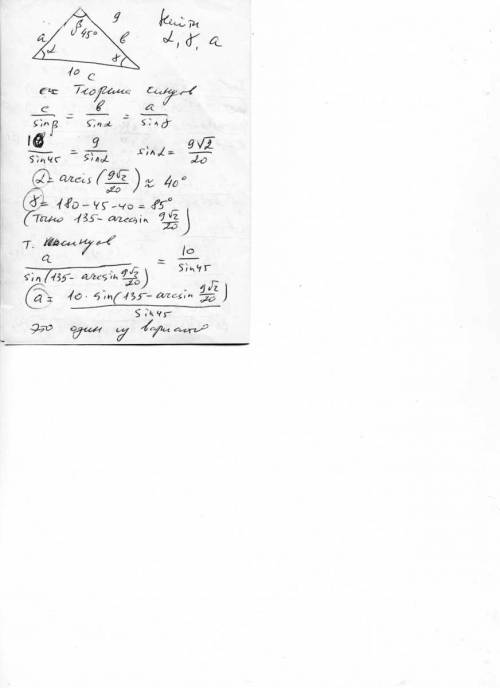 β 45° 9
a α b γ
10 c
Найти
α, γ, a
Теорема синусов
c/sinβ = b/sinα = a/sinγ
10/sin45 = 9/sinα sinα = 9√2/20
α = arcsin(9√2/20) ≈ 40°
γ = 180 - 45 - 40 = 85°
(Точно 135 - arcsin 9√2/20)
т. синусов
a/sin(135 - arcsin 9√2/20) = 10/sin45
a = 10 · sin(135 - arcsin 9√2/20)/sin45
Это один из вариантов